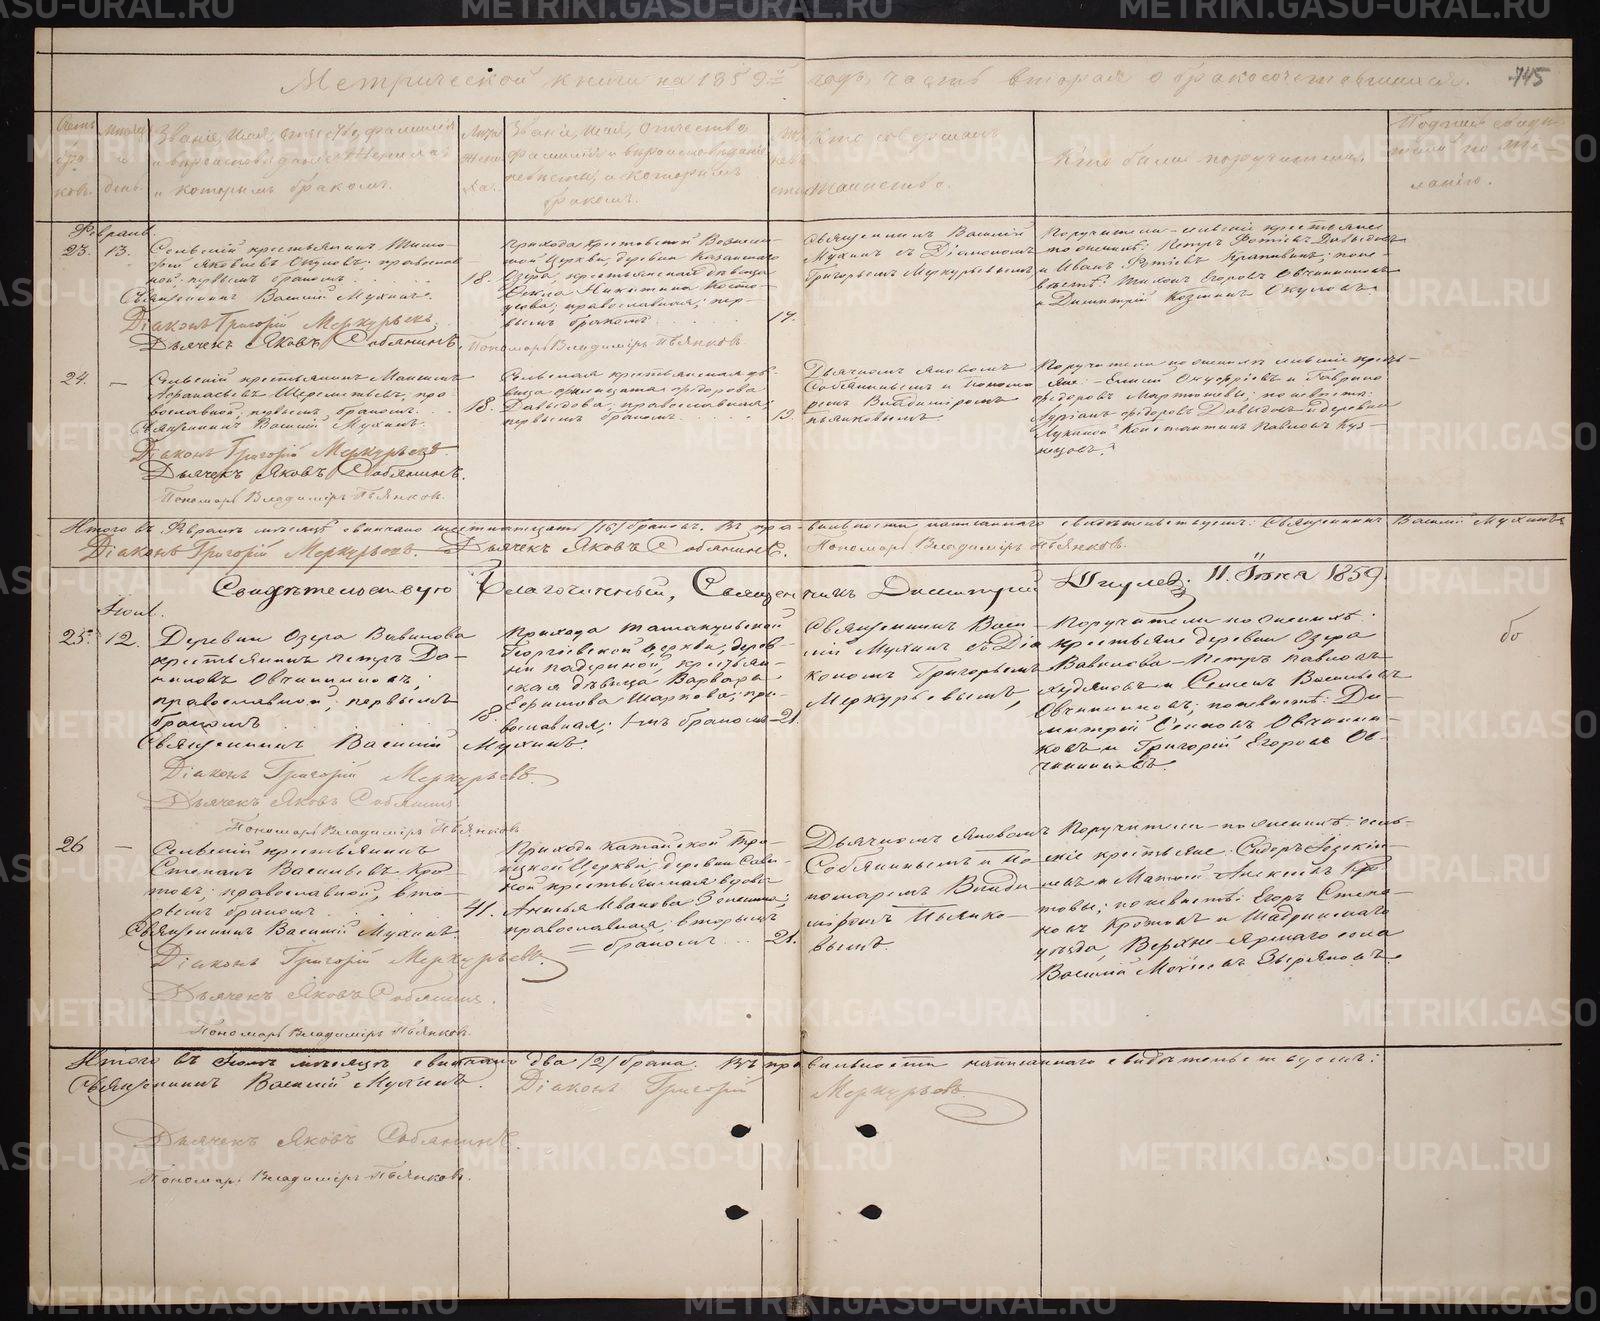 Метрической книги на 1859й годъ, часть вторая о бракосочетавшихся. 745
Званіе, имя, отчество, фамилія
и вѣроисповѣданіе жениха
и которымъ бракомъ.
Званіе, имя, отчество,
фамилія и вѣроисповѣданіе
невѣсты, и которымъ
бракомъ.
Кто совершалъ
таинство.
Кто были поручители.
Февраль.
23. 13.
Сельскій крестьянинъ Тимо-
фей Яковлевъ Окуловъ; православ-
ной, первымъ бракомъ.
Священникъ Василій Мухинъ.
Діаконъ Григорій Меркурьевъ.
Дьячекъ Яковъ Собянинъ.
18.
Прихода Крестовской Вознесен-
ской Церкви, деревни Казанцева
Озера, крестьянская дѣвица
Фекла Никитина
православная; пер-
вымъ бракомъ
Пономарь Владиміръ Пьянковъ
17.
Священникъ Василій
Мухинъ съ Діакономъ
Григорьемъ Меркурьевымъ
Поручители сельскіе крестьяне
по женихѣ: Петръ Фотіевъ Давыдовъ
и Иванъ Фотіевъ по не-
вѣстѣ: Тихонъ Егоровъ Овчинниковъ
и Димитрій Козминъ Окуловъ
24. —
Сельскій крестьянинъ Максимъ
Афанасьевъ Шереметьевъ, пра-
вославной, первымъ бракомъ.
Священникъ Василій Мухинъ.
Діаконъ Григорій Меркурьевъ.
Дьячекъ Яковъ Собянинъ.
Пономарь Владиміръ Пьянковъ.
18.
Сельская крестьянская дѣ-
вица Федорова
Давыдова, православная;
первымъ бракомъ
19.
Дьячкомъ Яковомъ
Собянинымъ и Понома
ремъ Владиміромъ
Пьянковымъ.
Поручители по женихѣ сельскіе кресть-
яне: и Гаврило
Федоровъ по невѣстѣ:
Федоровъ Давыдовъ и деревни
Константинъ Павловъ Куз-
нецовъ.
Итого въ Февралѣ мѣсяцѣ овѣнчано шестнатцать /16/ браковъ. Въ пра-вильности написаннаго свидѣтельствуемъ: Священникъ Василій Мухинъ
Діаконъ Григорій Меркурьевъ. Дьячекъ Яковъ Собянинъ. Пономарь Владиміръ Пьянковъ.
Свидѣтельствую Благочинный, Священникъ Димитрій 11. Іюня 1859.
Іюнь.
25. 12.
Деревни Озера Вавилова
крестьянинъ Петръ Да-
ниловъ Овчинниковъ;
православной, первымъ
бракомъ
Священникъ Василій Мухинъ.
Діаконъ Григорій Меркурьевъ.
Дьячекъ Яковъ Собянинъ
Пономарь Владиміръ Пьянковъ
18.
Прихода Таткульской
Георгіевской церкви, дерев-
ни Падериной, крестьян-
ская дѣвица Варвара
Ефимова Шаркова; пра-
вославная; 1-мъ бракомъ
21.
Священникъ Васи-
лій Мухинъ съ Діа
кономъ Григорьемъ
Меркурьевымъ,
Поручители по женихѣ:
крестьяне деревни Озера
Вавилова Петръ Павловъ
Худяковъ и Семенъ Васильевъ
Овчинниковъ; по невѣстѣ: Ди-
митрій Овчинни-
ковъ и Григорій Егоровъ Ов-
чинниковъ.
бо
26 —
Сельскій крестьянинъ
Степанъ Васильевъ Кро-
товъ; православной, вто-
рымъ бракомъ
Священникъ Василій Мухинъ.
Діаконъ Григорій Меркурьевъ.
Дьячекъ Яковъ Собянинъ.
Пономарь Владиміръ Пьянковъ.
41.
Прихода Катайской Тро-
ицкой Церкви, деревни
крестьянская вдова
Анисья Иванова
православная; вторымъ
= бракомъ
21.
Дьячкомъ Яковомъ
Собянинымъ и По-
номаремъ Влади
міромъ Пьянко-
вымъ.
Поручители по женихѣ: сель-
скіе крестьяне: Сидоръ Іезекіи-
левъ и Матвей Алексѣевъ Кро-
товы; по невѣстѣ: Егоръ Степа-
новъ Кротовъ и Шадринскаго
уѣзда, Верхне-Ярскаго села
Василій Моисеевъ Звѣряковъ.
Итого въ Іюнѣ мѣсяцѣ овѣнчано два /2/ брака. Въ правильности написаннаго свидѣтельствуемъ:
Священникъ Василій Мухинъ. Діаконъ Григорій Меркурьевъ
Дьячекъ Яковъ Собянинъ.
Пономарь Владиміръ Пьянковъ.
METRIKI.GASO-URAL.RU